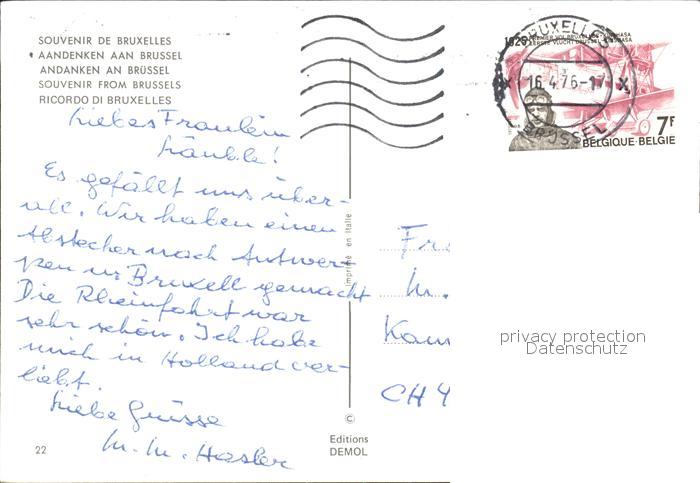 SOUVENIR DE BRUXELLES
AANDENKEN AAN BRUSSEL
ANDANKEN AN BRÜSSEL
SOUVENIR FROM BRUSSELS
RICORDO DI BRUXELLES
Liebes Fräulein
Es gefällt uns über-
all. Wir haben einen
Abstecher nach Antwer-
pen u. Bruxell gemacht
Die Rheinfahrt war
sehr schön. Ich habe
mich in Holland ver-
liebt.
Liebe Grüsse
M. M. Hasler
22
imprimé en Italie
©
Editions
DEMOL
BRUXELLES
16.4.76-17
BRUSSEL
7F
BELGIQUE-BELGIE
Fr
M.
CH 4
privacy protection
Datenschutz